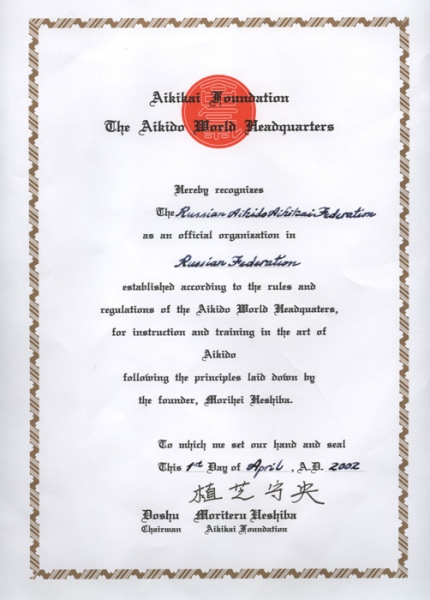 Aikikai Foundation
The Aikido World Headquarters
Hereby recognizes
The Russian Aikido Aikikai Federation
as an official organization in
Russian Federation
established according to the rules and
regulations of the Aikido World Headquaters,
for instruction and training in the art of
Aikido
following the principles laid down by
the founder, Morihei Ueshiba.
To which me set our hand and seal
This 1st Day of April, A.D. 2002
植芝守央
Doshu Moriteru Ueshiba
Chairman Aikikai Foundation